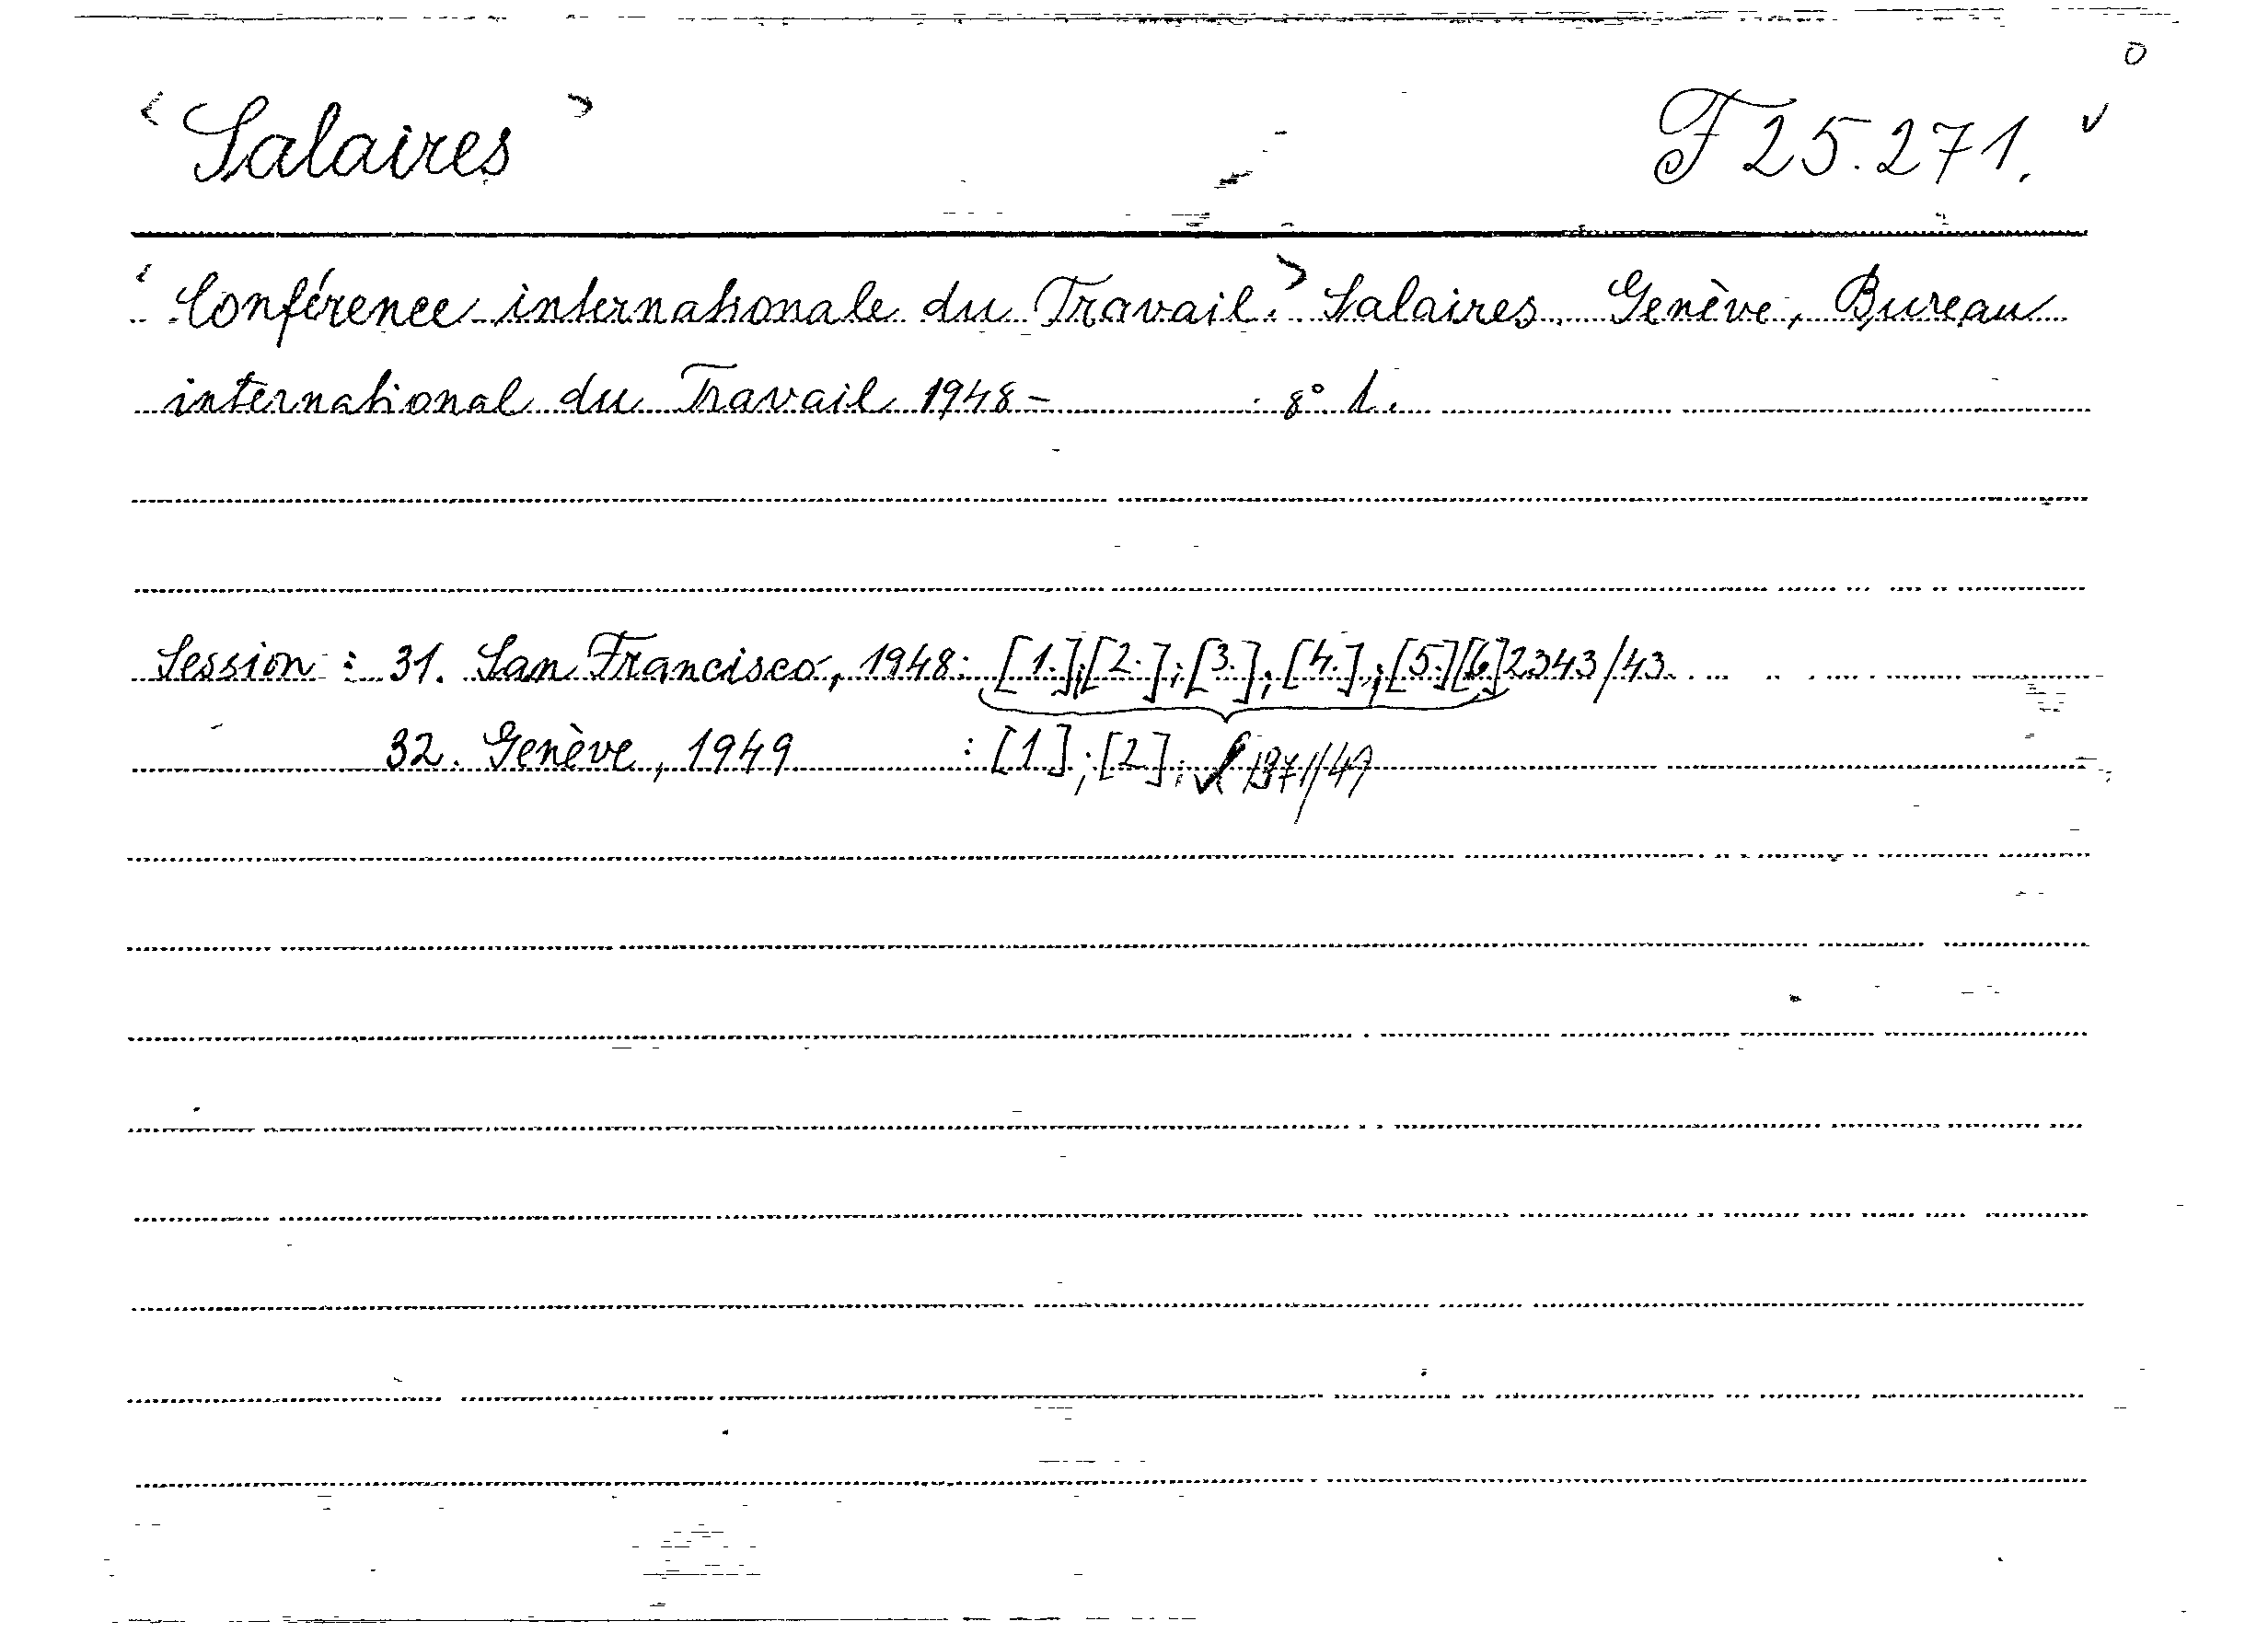 ‹Salaires› F 25.271. v
‹Conférence internationale du Travail.› Salaires. Genève, Bureau
international du Travail 1948- 8° 1.
Session : 31. San Francisco, 1948: [1.];[2.];[3.];[4.];[5.][6]2343/43
32. Genève, 1949 : [1];[2];